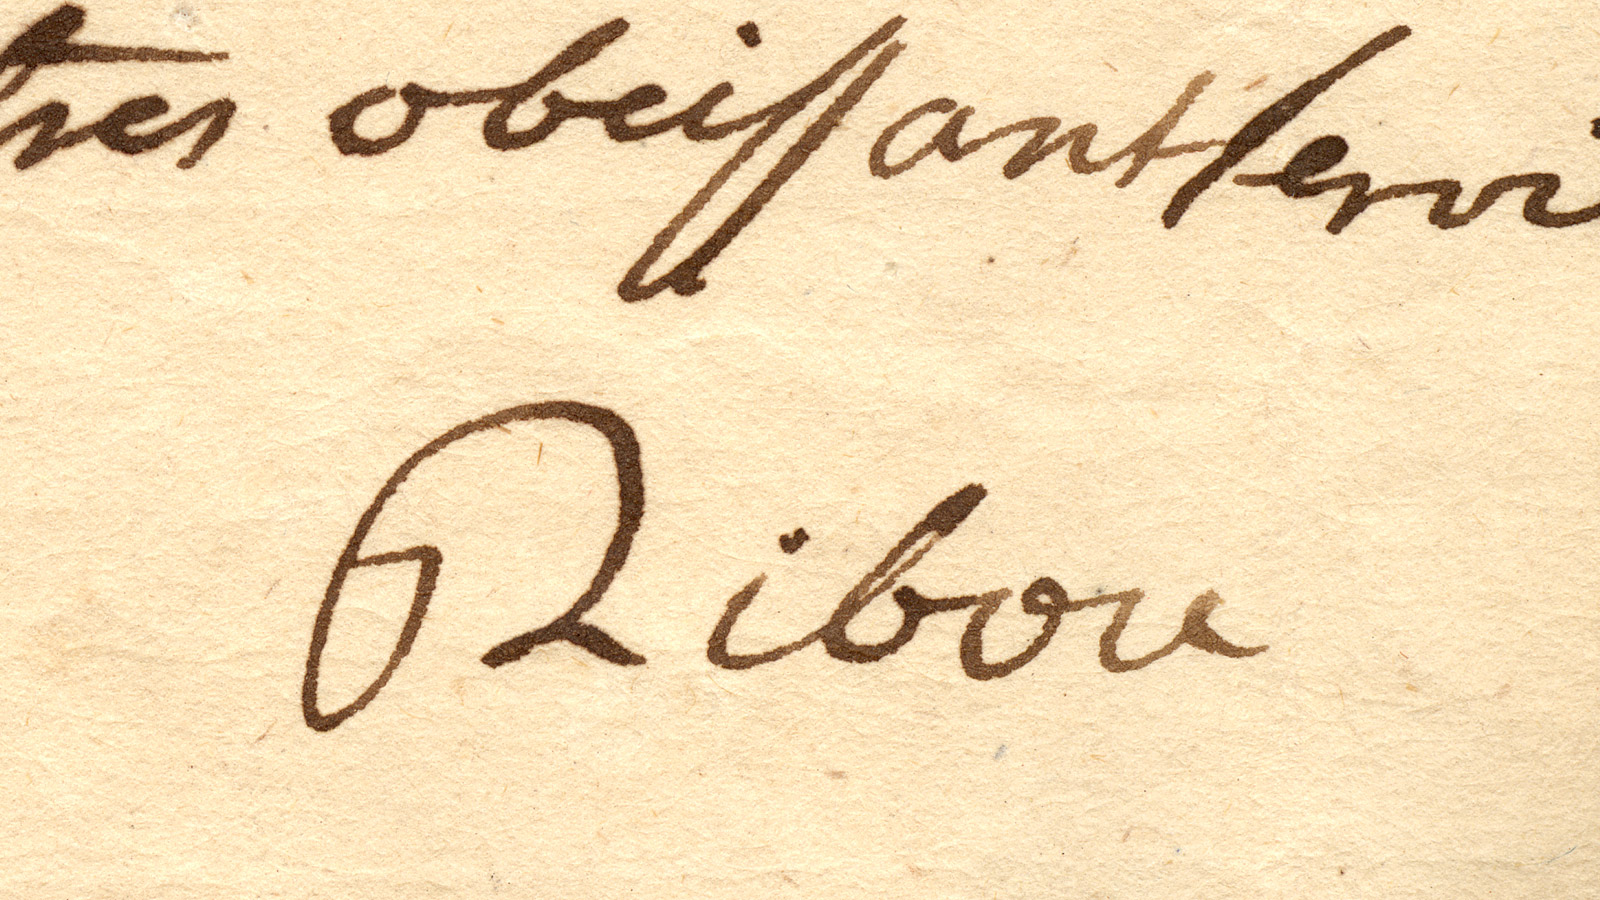 tres obeissant servi
Ribou